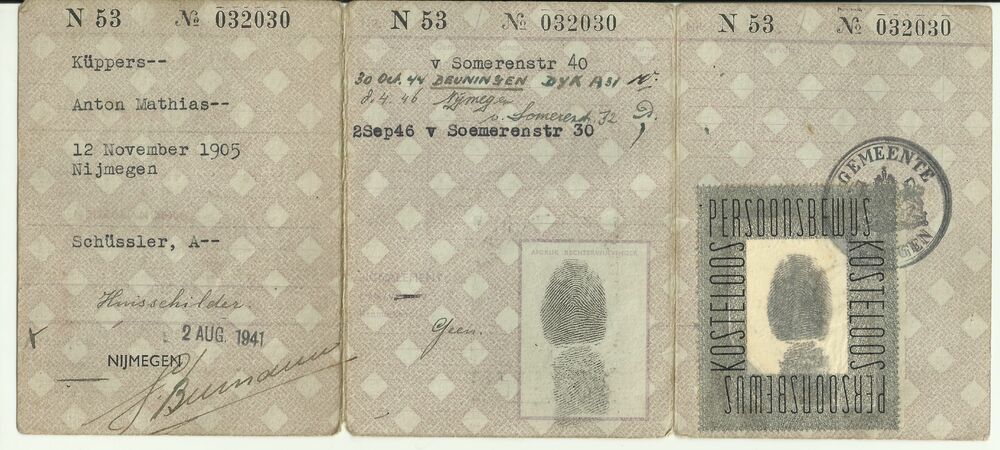 N 53 № 032030
Küppers--
Anton Mathias--
12 November 1905
Nijmegen
Schüssler, A--
Huisschilder.
2 AUG. 1941
NIJMEGEN
N 53 № 032030
v Somerenstr 40
30 Oct. 44 BEUNINGEN DYK A51
8.4.46 Nijmegen
v. Somerenstr. 32
2Sep46 v Soemerenstr 30
AFDRUK RECHTERWIJSVINGER
Geen.
N 53 № 032030
GEMEENTE
GEN
PERSOONSBEWIJS
KOSTELOOS
KOSTELOOS
PERSOONSBEWIJS